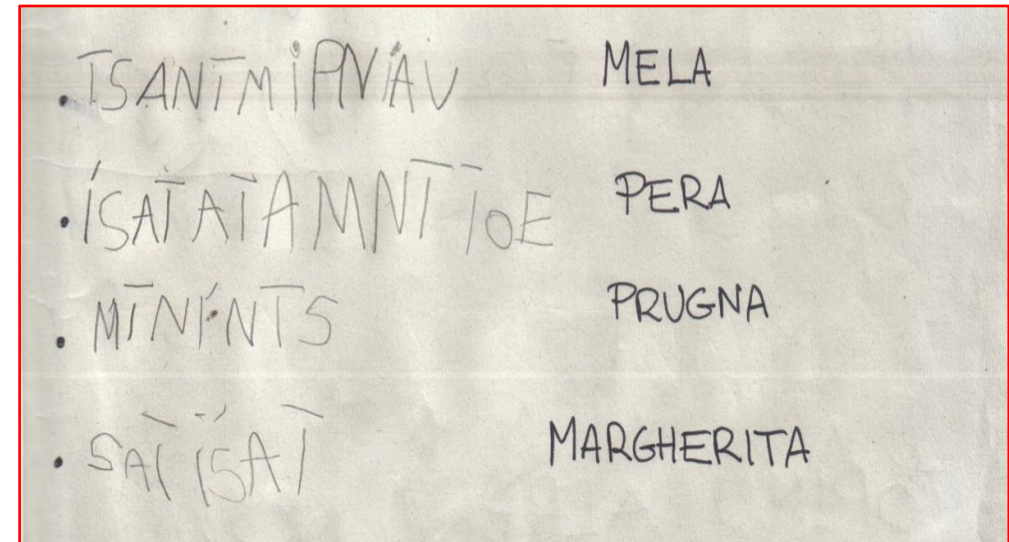 . TSANTMiPNiAV MELA
. iSATATAMNTTOE PERA
. MTNiNTS PRUGNA
. SATiSAT MARGHERITA